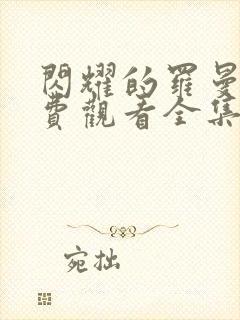 閃耀的羅曼
費觀看全集
宛拙